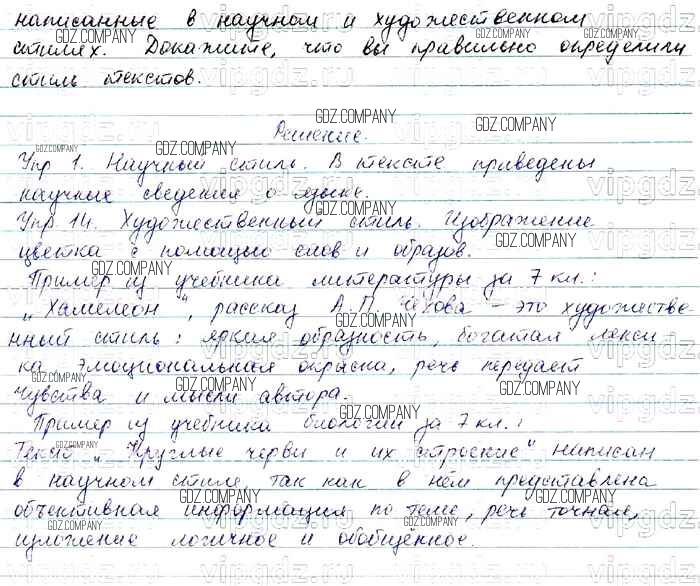 написанные в научном и художественном
стилях. Докажите, что вы правильно определили
стиль текстов.
Решение.
Упр 1. Научный стиль. В тексте приведены
научные сведения о языке.
Упр 14. Художественный стиль. Изображение
цветка с помощью слов и образов.
Пример из учебника литературы за 7 кл.:
„Хамелеон", рассказ А.П. Чехова – это художестве-
нный стиль: яркая образность, богатая лекси
ка эмоциональная окраска, речь передает
чувства и мысли автора.
Пример из учебника биологии за 7 кл.:
Текст „Круглые черви и их строение" написан
в научном стиле, так как в нём представлена
объективная информация по теме, речь точная,
изложение логичное и обобщённое.